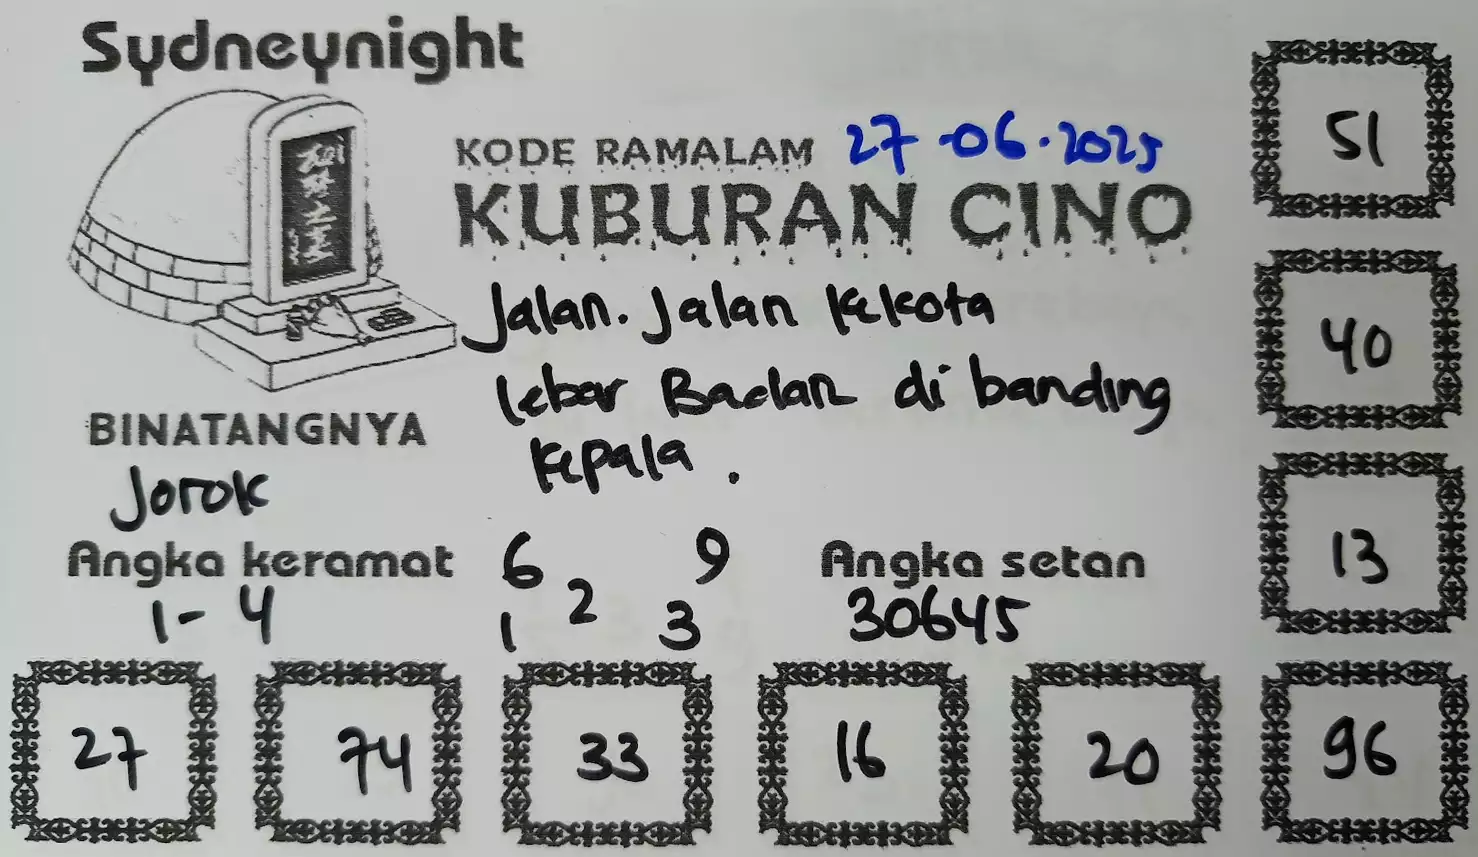 Sydneynight
KODE RAMALAM 27-06.2025
KUBURAN CINO
Jalan. Jalan kekota
lebar Badan di banding
kepala.
BINATANGNYA
Jorok
Angka keramat
1-4
6 9
2
1 3
Angka setan
30645
51
40
13
27 74 33 16 20 96